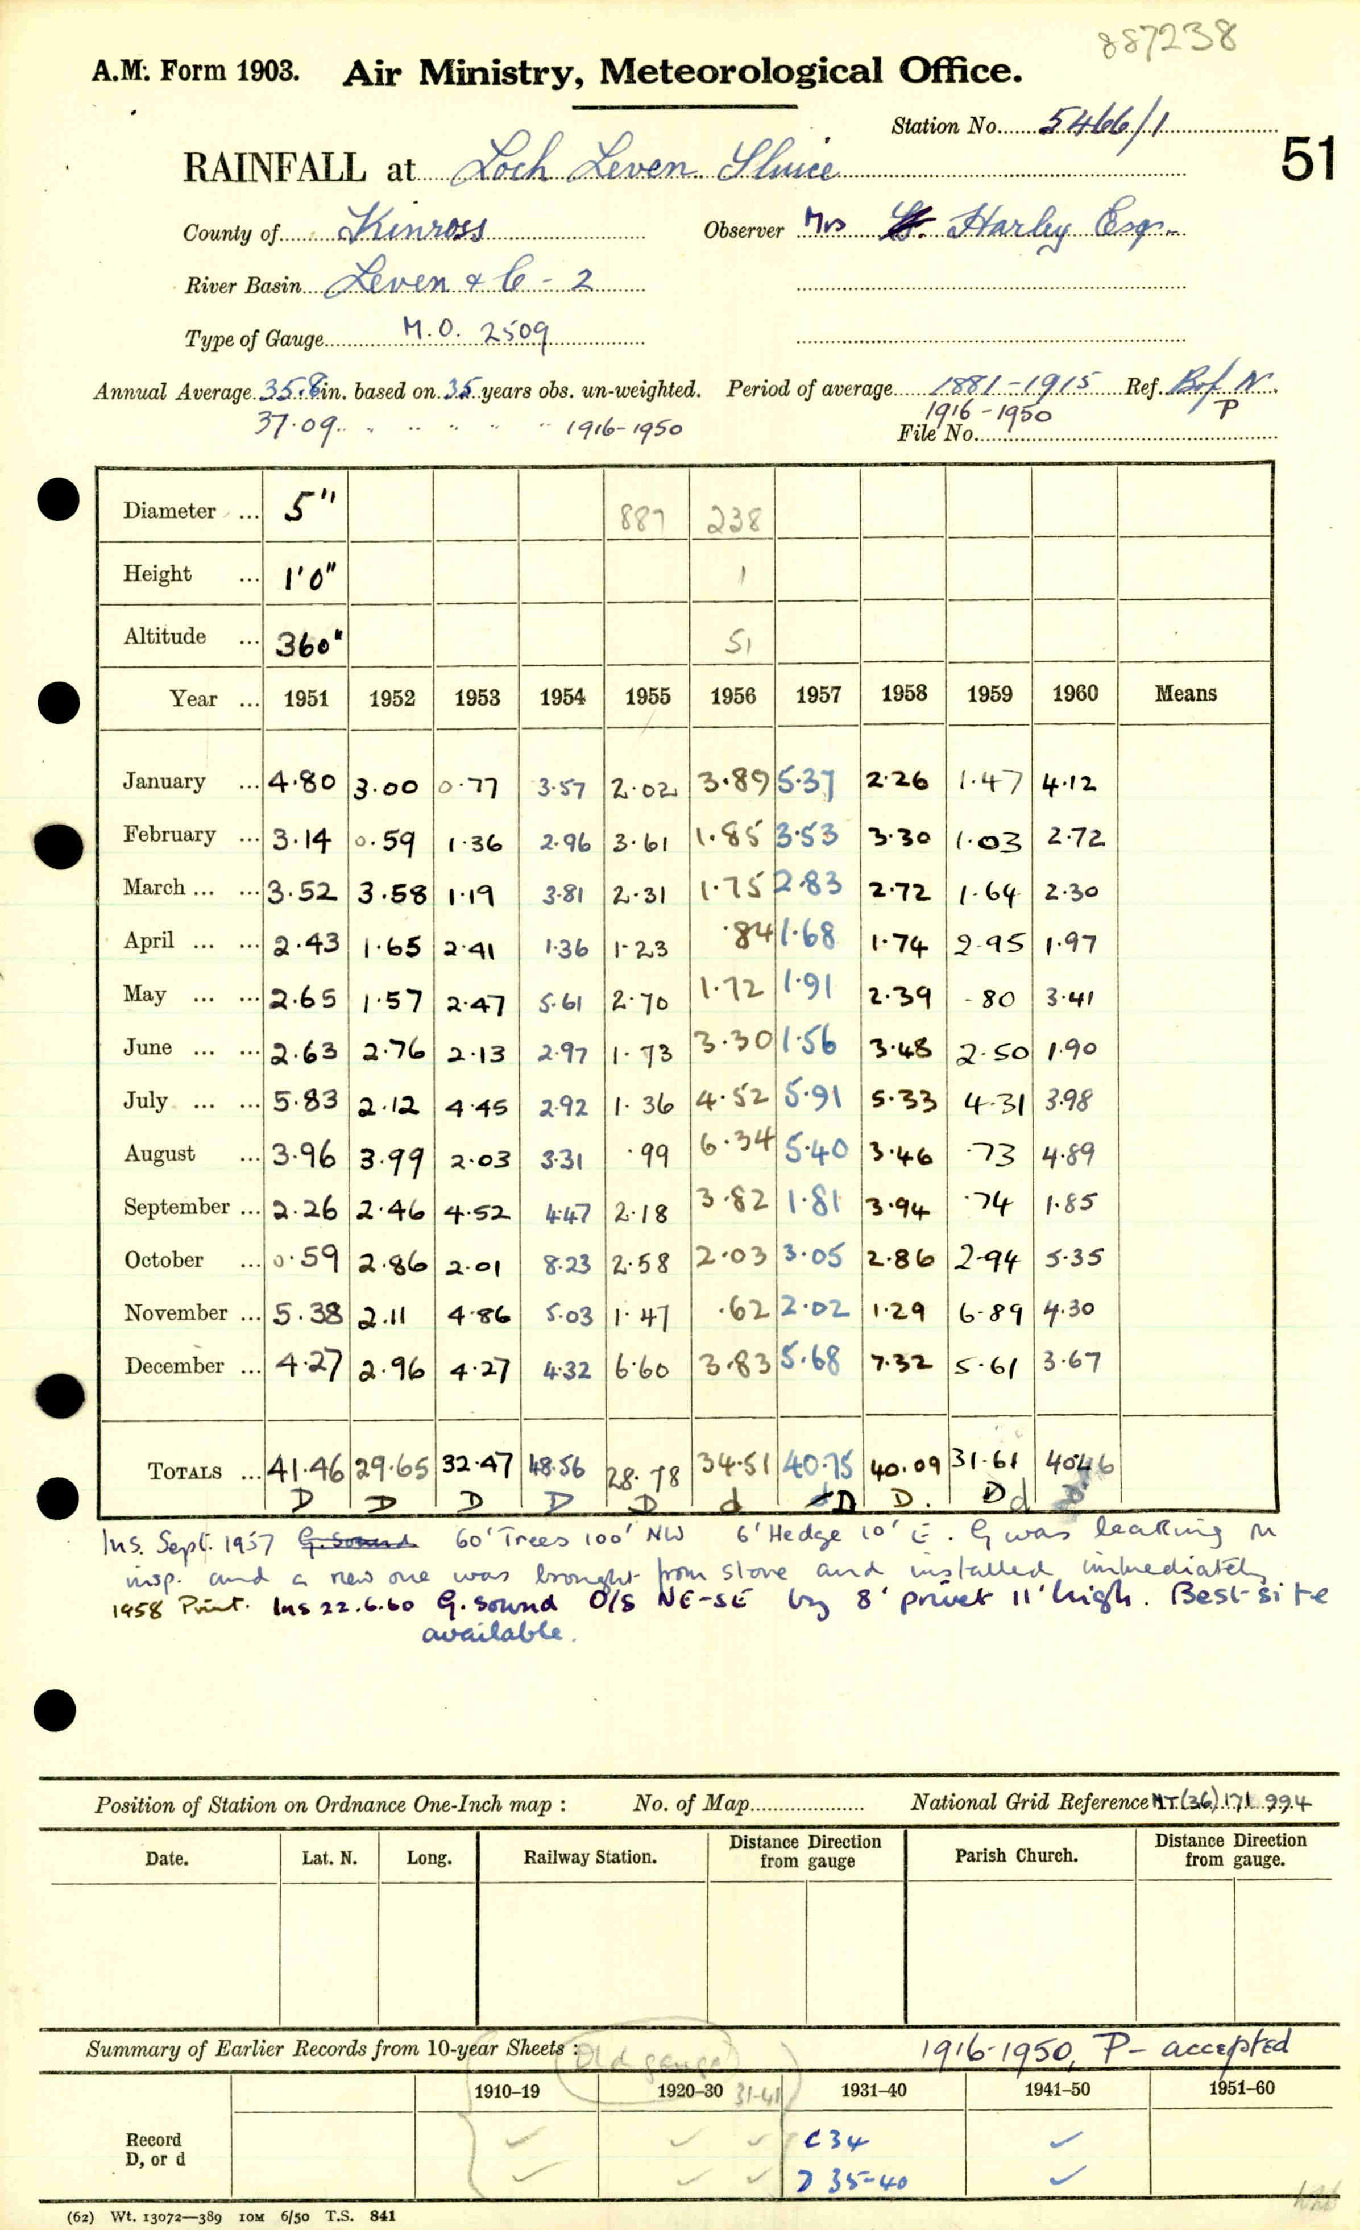 887238
A.M. Form 1903. Air Ministry, Meteorological Office.
Station No. 5466/1
51
RAINFALL at Loch Leven Sluice
County of Kinross Observer Mrs Harley Esq.
River Basin Leven & C - 2
Type of Gauge M.O. 2509
Annual Average 35.8 in. based on 35 years obs. un-weighted. Period of average 1881-1915 Ref. B of N.
37.09 .. .. .. .. .. 1916-1950 1916-1950 P
File No.
Diameter ... 5" 887 238
Height ... 1'0" 1
Altitude ... 360" 51
Year ... 1951 1952 1953 1954 1955 1956 1957 1958 1959 1960 Means
January ... 4.80 3.00 0.77 3.57 2.02 3.89 5.37 2.26 1.47 4.12
February ... 3.14 0.59 1.36 2.96 3.61 1.85 3.53 3.30 1.03 2.72
March ... ... 3.52 3.58 1.19 3.81 2.31 1.75 2.83 2.72 1.64 2.30
April ... ... 2.43 1.65 2.41 1.36 1.23 .84 1.68 1.74 2.95 1.97
May ... ... 2.65 1.57 2.47 5.61 2.70 1.72 1.91 2.39 .80 3.41
June ... ... 2.63 2.76 2.13 2.97 1.73 3.30 1.56 3.48 2.50 1.90
July ... ... 5.83 2.12 4.45 2.92 1.36 4.52 5.91 5.33 4.31 3.98
August ... 3.96 3.99 2.03 3.31 .99 6.34 5.40 3.46 .73 4.89
September ... 2.26 2.46 4.52 4.47 2.18 3.82 1.81 3.94 .74 1.85
October ... 0.59 2.86 2.01 8.23 2.58 2.03 3.05 2.86 2.94 5.35
November ... 5.38 2.11 4.86 5.03 1.47 .62 2.02 1.29 6.89 4.30
December ... 4.27 2.96 4.27 4.32 6.60 3.83 5.68 7.32 5.61 3.67
TOTALS ... 41.46 29.65 32.47 48.56 28.78 34.51 40.75 40.09 31.61 40.46
D D D D D d D D. D d
Ins. Sept. 1957 G. sound 60' Trees 100' NW 6' Hedge 10' E. G was leaking on
insp. and a new one was brought from store and installed immediately
1958 Print. Ins 22.6.60 G. sound O/S NE-SE by 8' privet 11' high. Best site
available.
Position of Station on Ordnance One-Inch map : No. of Map National Grid Reference NT(36) 171 994
Date. Lat. N. Long. Railway Station. Distance Direction from gauge Parish Church. Distance Direction from gauge.
Summary of Earlier Records from 10-year Sheets : Old gauge 1916-1950, P- accepted
1910-19 1920-30 31-41 1931-40 1941-50 1951-60
Record ✓ ✓ ✓ C 34 ✓
D, or d ✓ ✓ ✓ D 35-40 ✓
(62) Wt. 13072—389 10M 6/50 T.S. 841